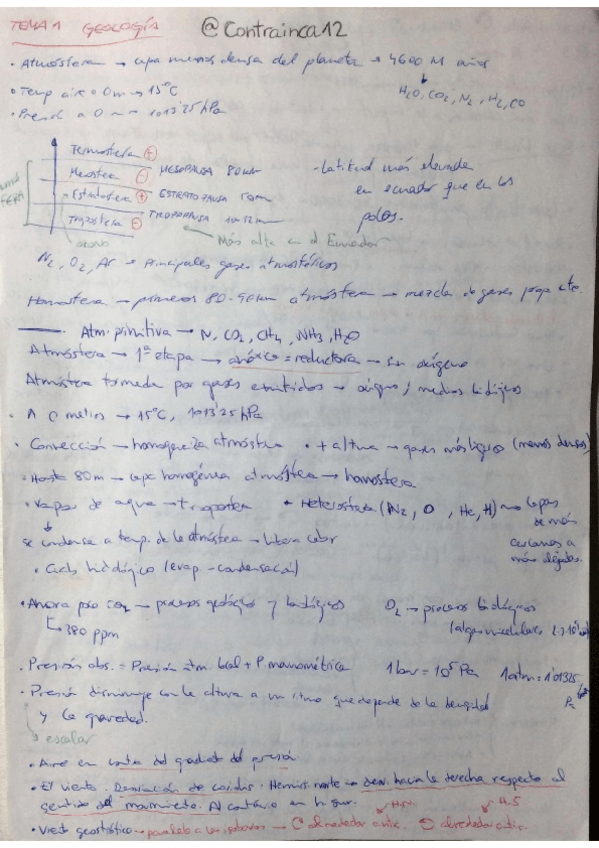 TEMA 1 GEOLOGÍA @Contrainca12
• Atmósfera → capa menos densa del planeta → 4600 M años
• Temp aire a 0m → 15°C H₂O, CO₂, N₂, H₂, CO
• Presión a 0 m → 1013'25 hPa
Termosfera (+)
Mesosfera (-) MESOPAUSA 80 km
Estratosfera (+) ESTRATOPAUSA 50 km
Troposfera (-) TROPOPAUSA 10-12 km
- Latitud más elevada
en ecuador que en los
polos.
ozono Más alta en el Ecuador
N₂, O₂, Ar → principales gases atmosféricos
Homosfera → primeros 80-90 km atmósfera → mezcla de gases prop cte.
Atm. primitiva → N, CO₂, CH₄, NH₃, H₂O
Atmósfera → 1ª etapa → anóxica = reductora → sin oxígeno
Atmósfera formada por gases emitidos → oxígeno; medios biológicos
• A 0 metros → 15°C, 1013'25 hPa
• Convección → homogeneiza atmósfera • + altura → gases más ligeros (menos densos)
• Hasta 80m → capa homogénea atmósfera → homosfera
• Vapor de agua → troposfera • Heterosfera (N₂, O, He, H) → capas
de más
cercanos a
más alejados.
se condensa a temp. de la atmósfera → libera calor
• Ciclo hidrológico (evap - condensación)
• Ahora poco CO₂ → procesos geológicos y biológicos O₂ → procesos biológicos
380 ppm (algas unicelulares
• Presión abs. = Presión atm. local + P manométrica 1 bar = 10⁵ Pa 1 atm = 1'01325
Pa
• Presión disminuye con la altura a un ritmo que depende de la densidad
y la gravedad.
escalar
• Aire en contra del gradiente de presión
• El viento. Desviación de coriolis. Hemisf. norte → desv. hacia la derecha respecto al
sentido del movimiento. Al contrario en h. sur.
H.N H.S
• Viento geostrófico → paralelo a las isobaras → alrededor antic. alrededor antic.